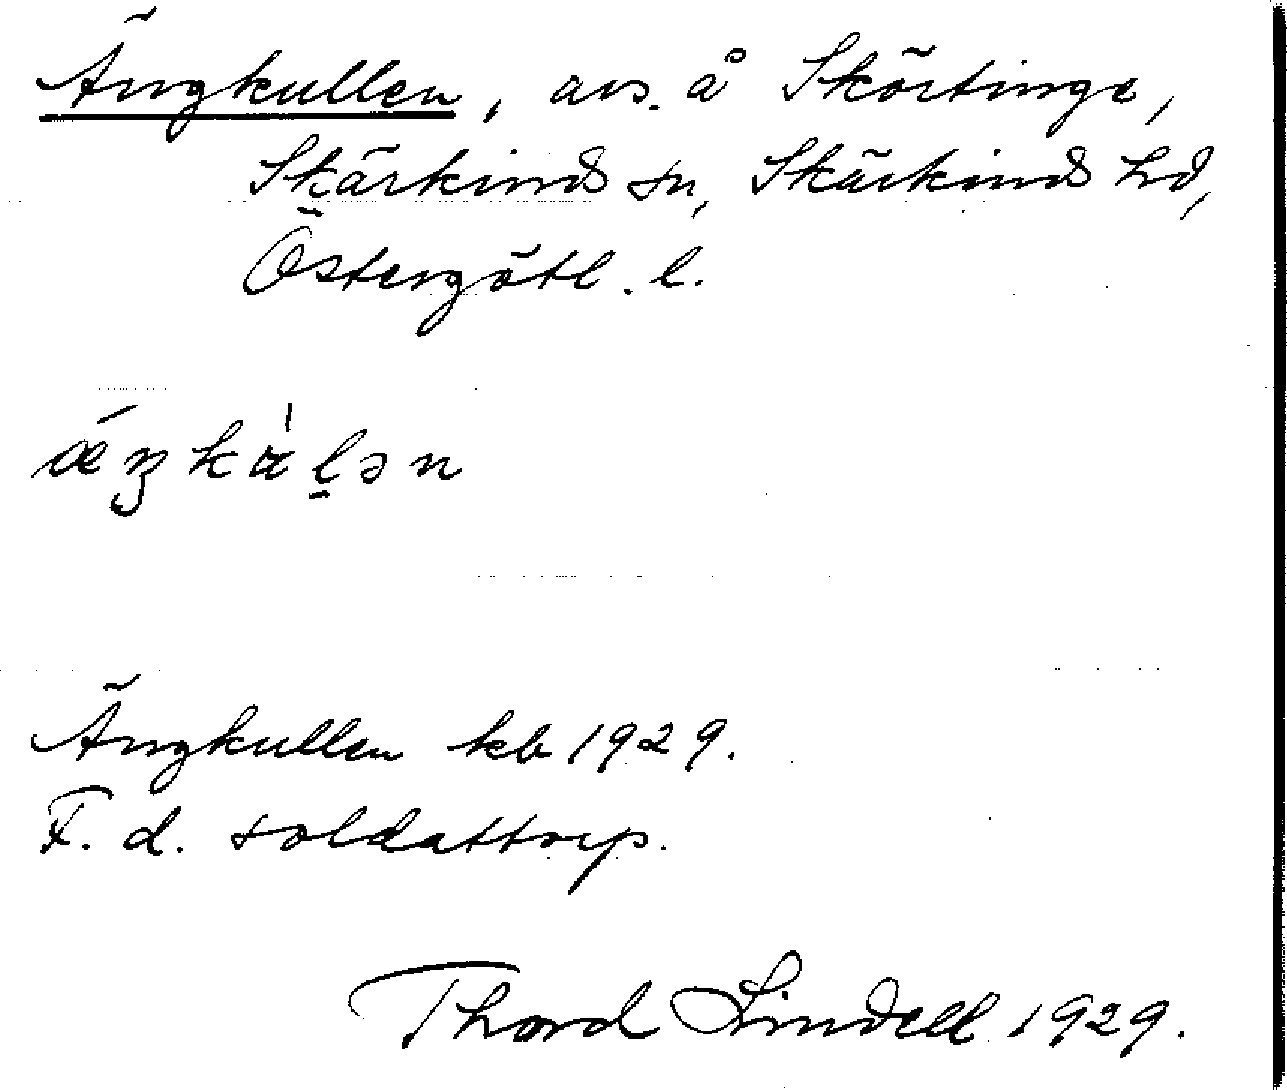 Ängkullen, avs. å Skörtinge,
Skärkinds sn, Skärkinds hd,
Östergötl. l.
Ängkullen kb 1929.
F. d. soldattorp.
Thord Lindell 1929.